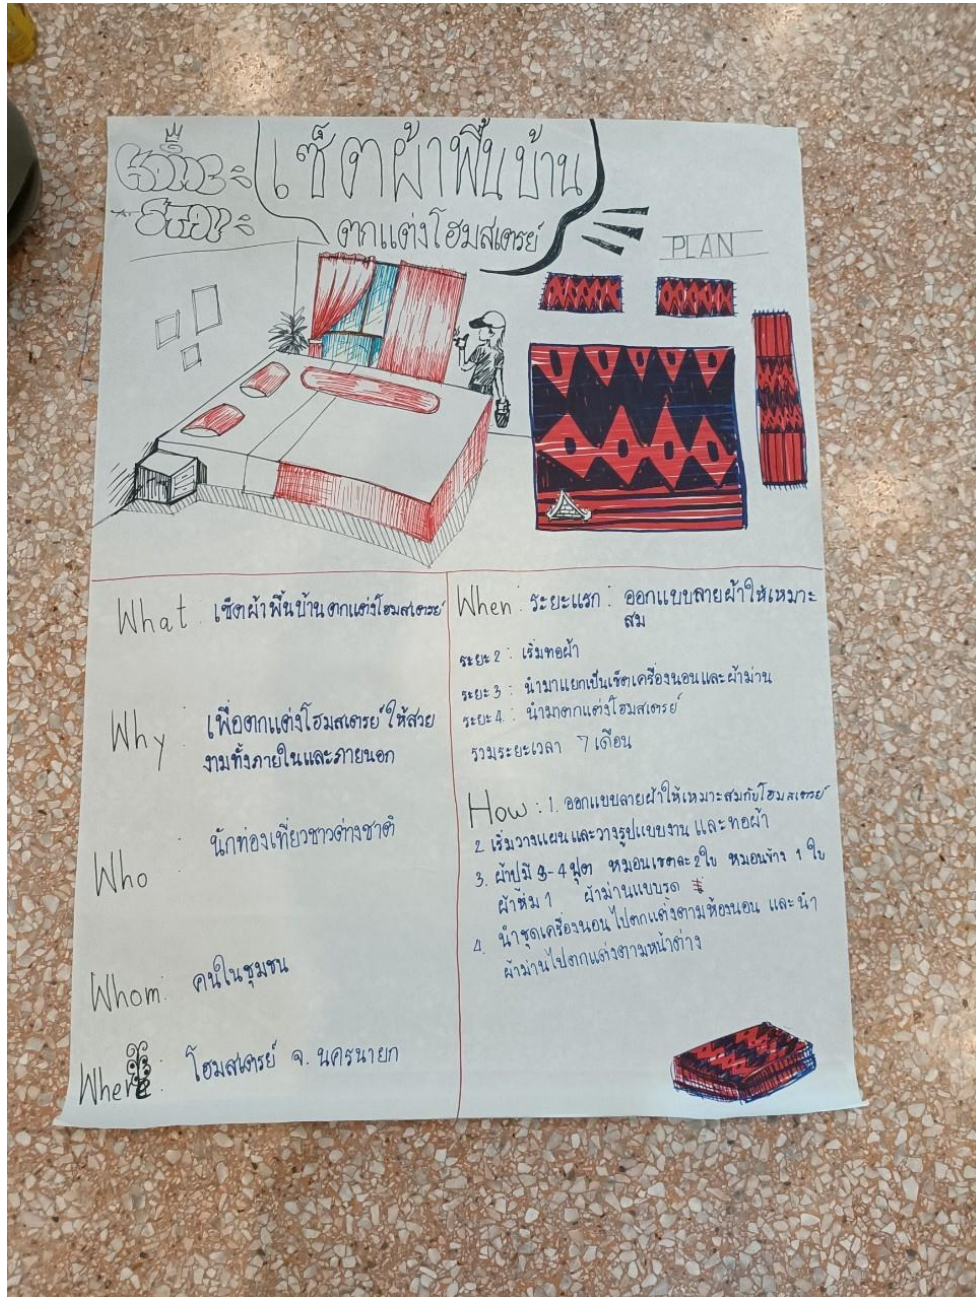 HOME
STAY
เซ็ตผ้าพื้นบ้าน
ตกแต่งโฮมสเตรย์
PLAN
What : เซ็ตผ้าพื้นบ้านตกแต่งโฮมสเตรย์
Why : เพื่อตกแต่งโฮมสเตรย์ให้สวย
งามทั้งภายในและภายนอก
Who : นักท่องเที่ยวชาวต่างชาติ
Whom : คนในชุมชน
Where : โฮมสเตรย์ จ. นครนายก
When : ระยะแรก : ออกแบบลายผ้าให้เหมาะ
สม
ระยะ 2 : เริ่มทอผ้า
ระยะ 3 : นำมาแยกเป็นเซ็ตเครื่องนอนและผ้าม่าน
ระยะ 4 : นำมาตกแต่งโฮมสเตรย์
รวมระยะเวลา 7 เดือน
How : 1. ออกแบบลายผ้าให้เหมาะสมกับโฮมสเตรย์
2 เริ่มวางแผนและวางรูปแบบงาน และทอผ้า
3. ผ้าปูมี 3-4 ฟุต หมอนเซตละ 2 ใบ หมอนข้าง 1 ใบ
ผ้าห่ม 1 ผ้าม่านแบบรูด
4. นำชุดเครื่องนอนไปตกแต่งตามห้องนอน และนำ
ผ้าม่านไปตกแต่งตามหน้าต่าง